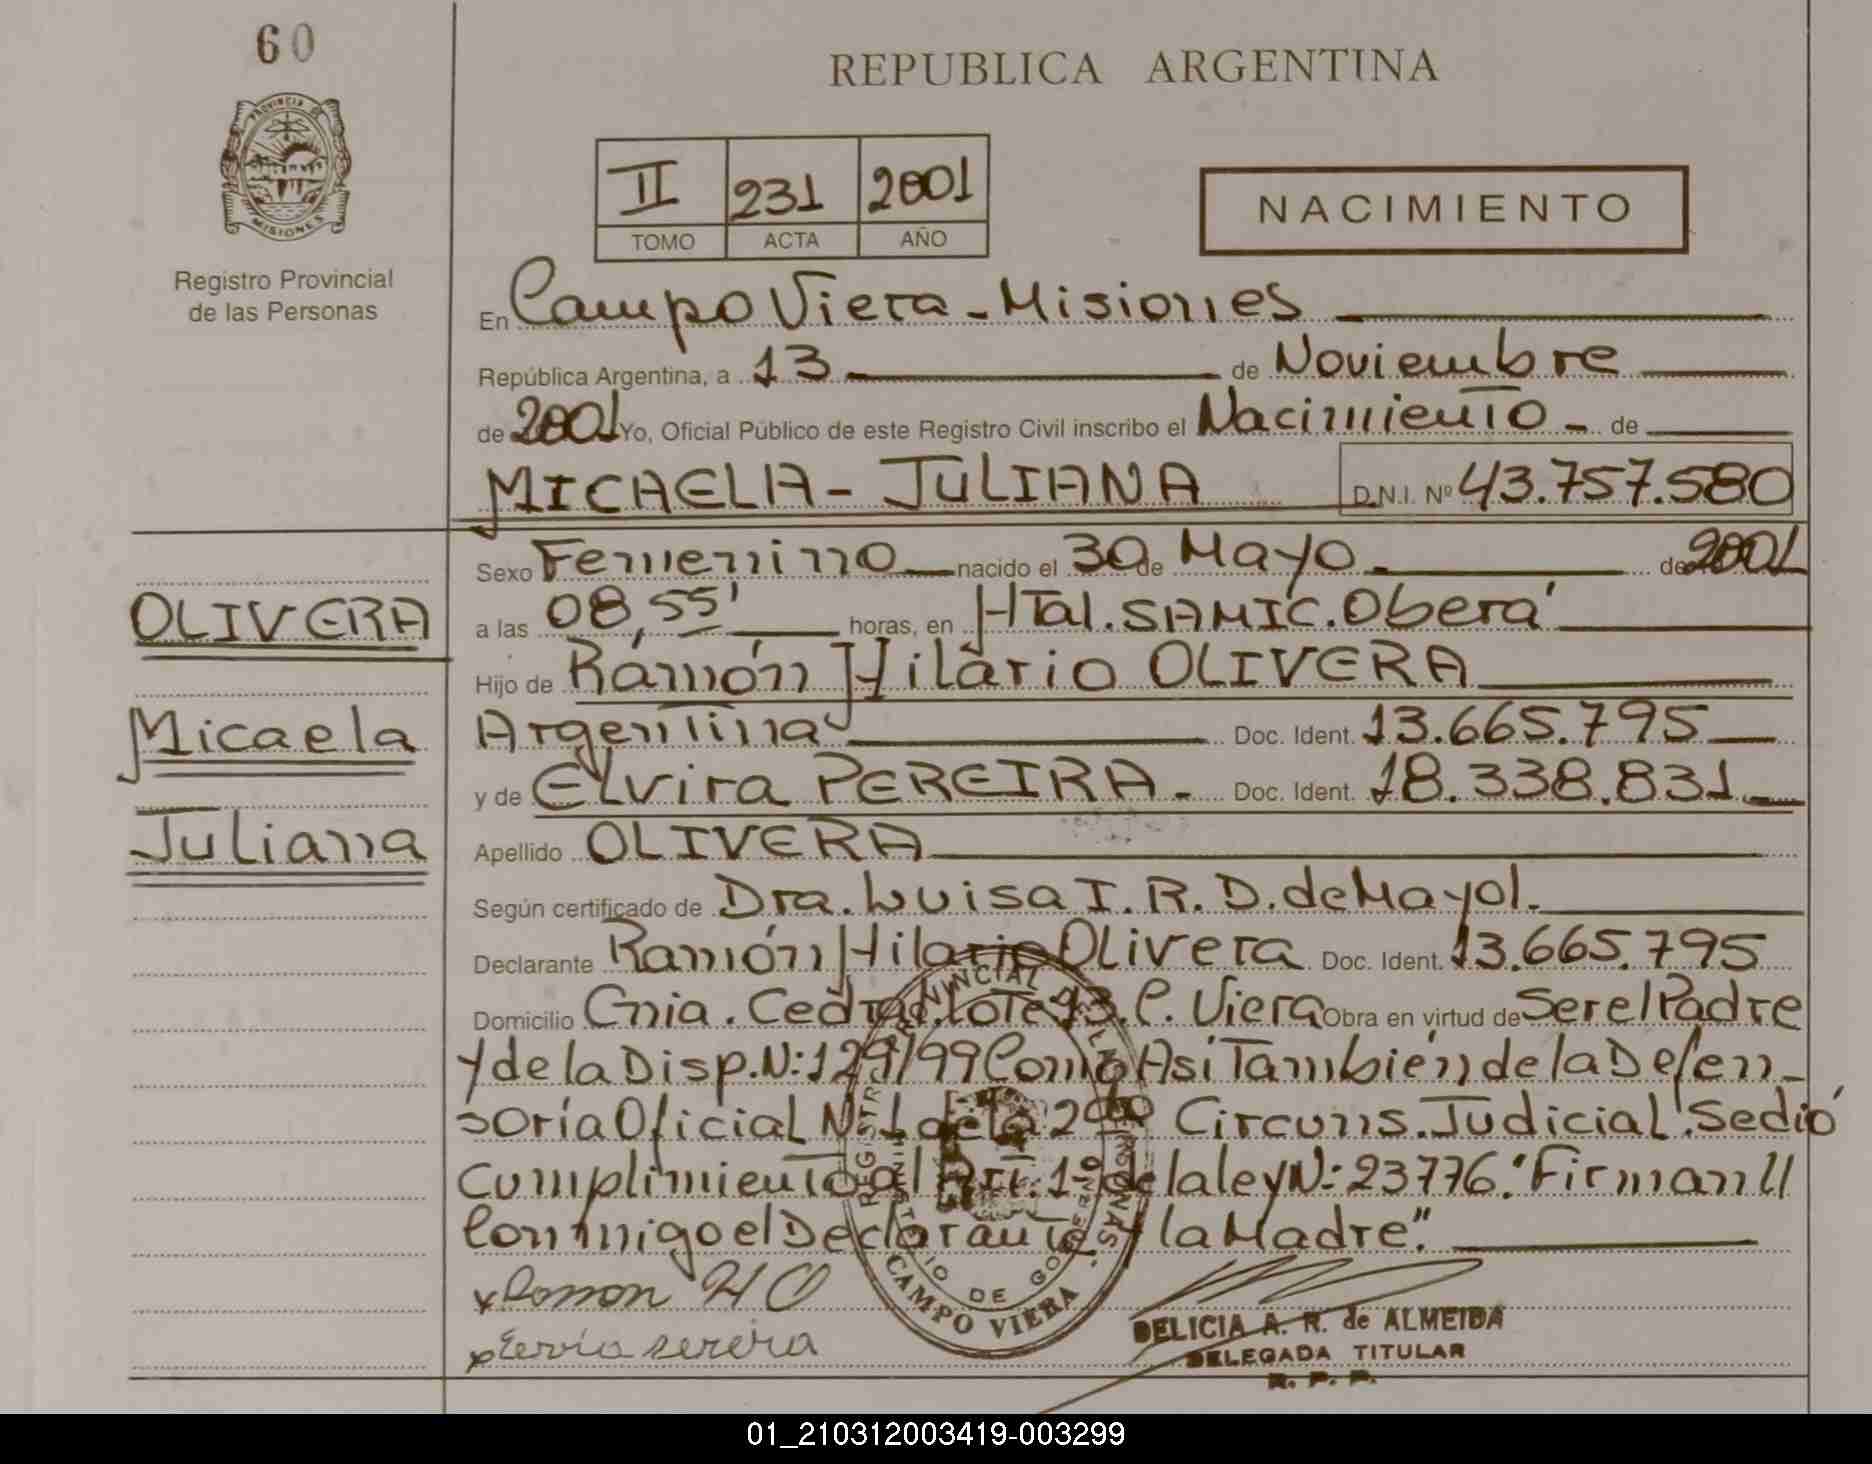 60
REPUBLICA ARGENTINA
PROVINCIA DE
MISIONES
Registro Provincial
de las Personas
II 231 2001
TOMO ACTA AÑO
NACIMIENTO
En Campo Viera - Misiones
República Argentina, a 13 de Noviembre
de 2001 Yo, Oficial Público de este Registro Civil inscribo el Nacimiento - de
MICAELA - JULIANA D.N.I. Nº 43.757.580
Sexo Femenino nacido el 30 de Mayo de 2001
OLIVERA
a las 08,55' horas, en Htal. SAMIC. Oberá
Hijo de Ramón Hilario OLIVERA
Micaela
Argentina Doc. Ident. 13.665.795
y de Elvira PEREIRA - Doc. Ident. 18.338.831
Juliana
Apellido OLIVERA
Según certificado de Dra. Luisa I. R. D. de Mayol.
Declarante Ramón Hilario Olivera Doc. Ident. 13.665.795
Domicilio Cnia. Cedral. Lote 93. C. Viera Obra en virtud de Ser el Padre
y de la Disp. N: 129/99 Como Asi También de la Defen-
soría Oficial N: 1 de la 2da Circuns. Judicial. Se dió
cumplimiento al Art. 1º de la ley N: 23776. "Firman ll
Conmigo el Declarante y la Madre".
x Ramon H O
x
REGISTRO PROVINCIAL DE LAS PERSONAS
MINISTERIO DE GOBIERNO
CAMPO VIERA
DELICIA A. R. de ALMEIDA
DELEGADA TITULAR
R. P. P.
01_210312003419-003299